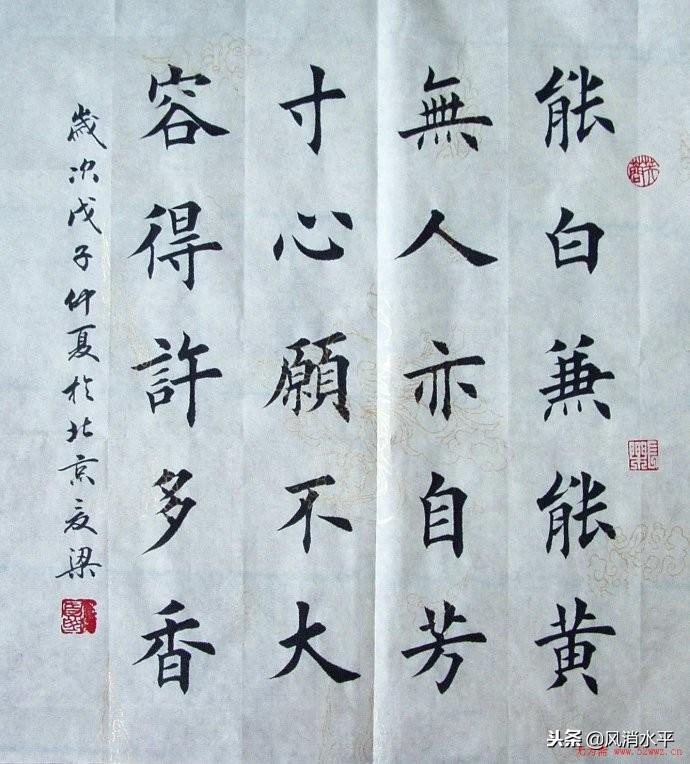 能白兼能黄
無人亦自芳
寸心願不大
容得許多香
歲次戊子仲夏於北京爰梁
头条 @风消水平
www.52wwz.cn